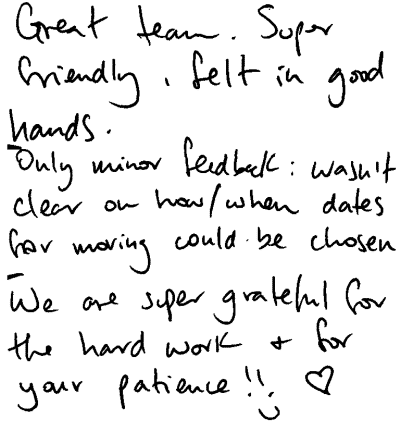 Great team. Super
friendly, felt in good
hands.
Only minor feedback: wasn't
clear on how/when dates
for moving could be chosen
We are super grateful for
the hard work + for
your patience!! ♡